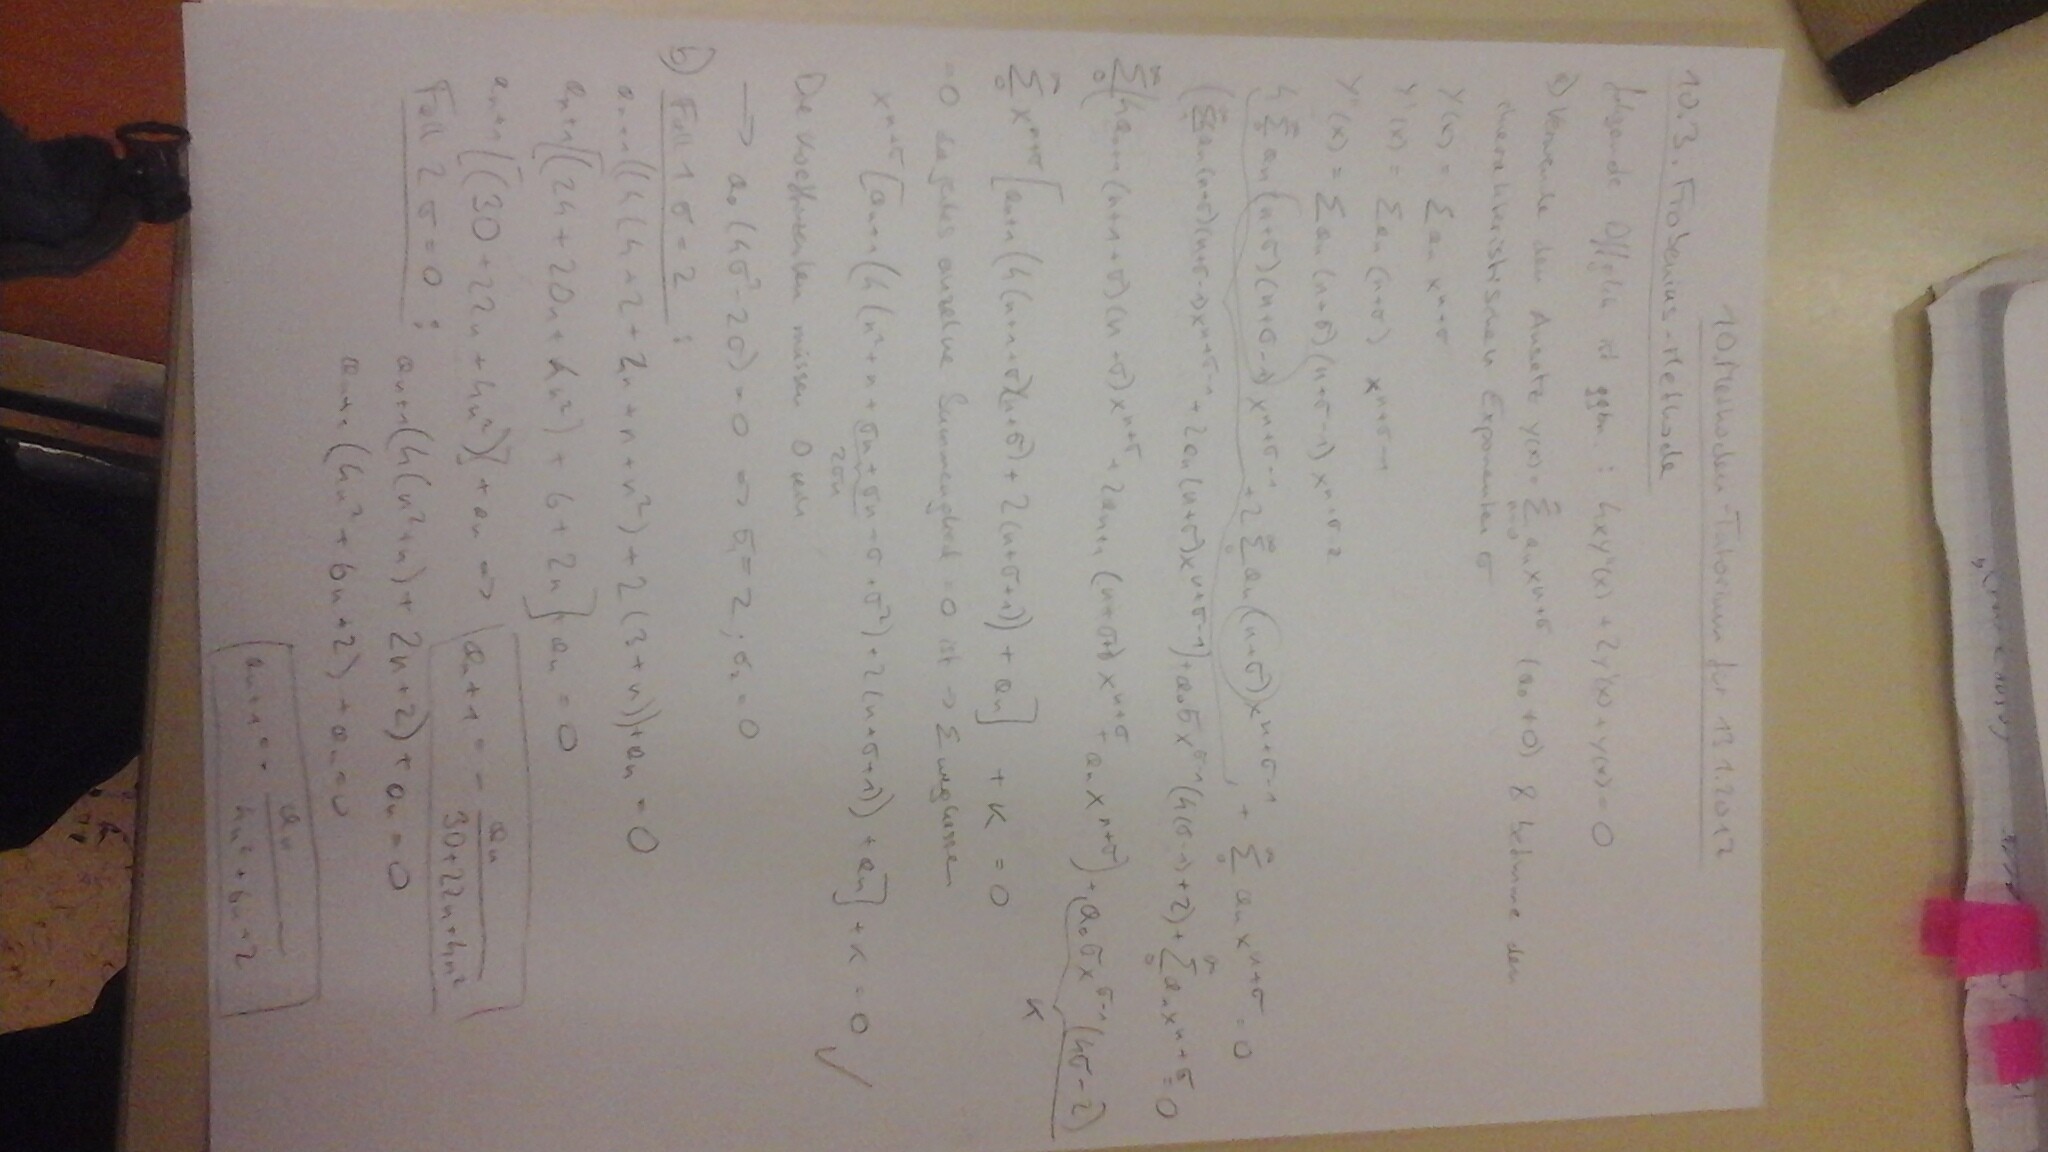 10. Methoden-Tutorium für 13.1.2012
10.3. Frobenius-Methode
folgende Dffgln ist ggbn. : 4xy''(x) + 2y'(x) + y(x) = 0
a) Verwende den Ansatz y(x) = ∑_{n=0}^∞ aₙx^{n+σ} (a₀ ≠ 0) & bestimme den
charakteristischen Exponenten σ
Y(x) = ∑ aₙ x^{n+σ}
Y'(x) = ∑ aₙ (n+σ) x^{n+σ-1}
Y''(x) = ∑ aₙ (n+σ)(n+σ-1) x^{n+σ-2}
4 ∑_0^∞ aₙ (n+σ)(n+σ-1) x^{n+σ-1} + 2 ∑_0^∞ aₙ (n+σ) x^{n+σ-1} + ∑_0^∞ aₙ x^{n+σ} = 0
aₙ(n+σ)(n+σ-1)x^{n+σ-1} + 2aₙ(n+σ)x^{n+σ-1}) + a₀σx^{σ-1}(4(σ-1)+2) + ∑_0^∞ aₙx^{n+σ} = 0
∑_0^∞ (4aₙ₊₁(n+1+σ)(n+σ)x^{n+σ} + 2aₙ₊₁(n+σ+1)x^{n+σ} + aₙx^{n+σ}) + a₀σx^{σ-1}(4σ-2)
K
∑_0^∞ x^{n+σ} [aₙ₊₁(4(n+1+σ)(n+σ) + 2(n+σ+1)) + aₙ] + K = 0
=0 da jedes einzelne Summenglied = 0 ist → ∑ weglassen
x^{n+σ} [aₙ₊₁(4(n²+n+σn+σn+σ+σ²)+2(n+σ+1)) + aₙ] + K = 0 ✓
2σn
Die Koeffizienten müssen 0 sein
→ a₀(4σ²-2σ) = 0 => σ₁ = 2 ; σ₂ = 0
b) Fall 1 σ = 2 :
aₙ₊₁((4(4+2+2n+n+n²)+2(3+n))+aₙ = 0
aₙ₊₁[(24+20n+4n²)+6+2n]+aₙ = 0
aₙ₊₁[(30+22n+4n²)]+aₙ => aₙ₊₁ = - aₙ/(30+22n+4n²)
Fall 2 σ = 0 : aₙ₊₁(4(n²+n)+2n+2)+aₙ = 0
aₙ₊₁(4n²+6n+2)+aₙ=0
aₙ₊₁ = - aₙ/(4n²+6n+2)